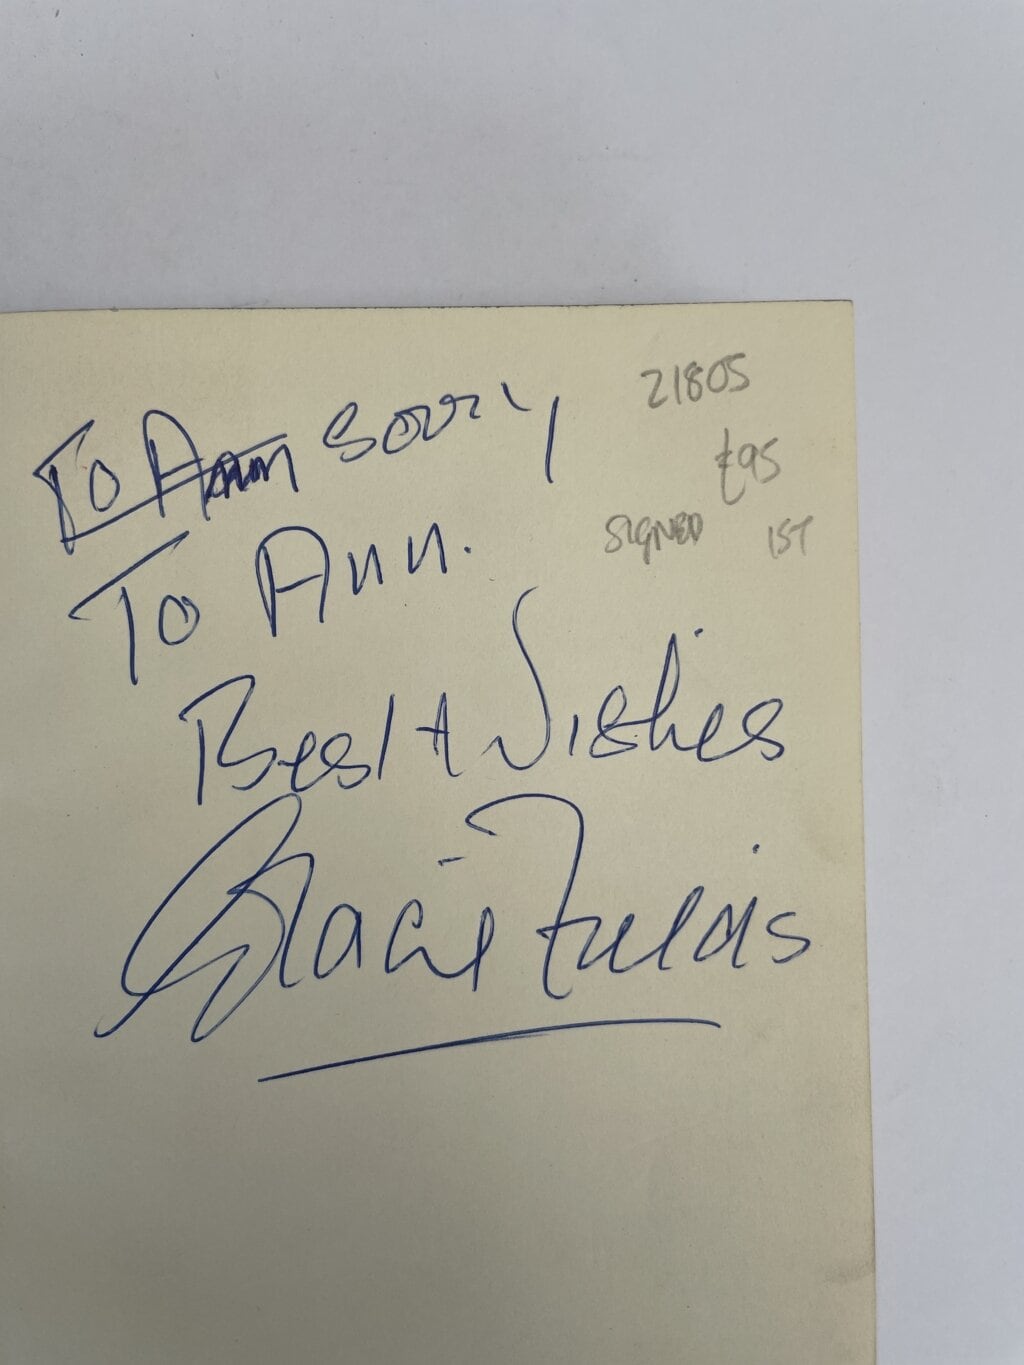 To Ann sorry
To Ann.
Best Wishes
Gracie Fields
21805
£95
SIGNED 1ST